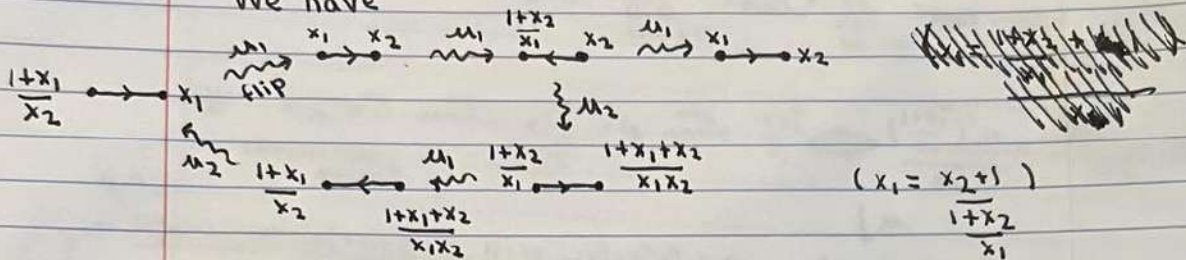 We have
μ₁ x₁ x₂ μ₁ (1+x₂)/x₁ x₂ μ₁ x₁ x₂
flip
(1+x₁)/x₂ x₁ μ₂
μ₂ (1+x₁)/x₂ (1+x₁+x₂)/(x₁x₂) μ₁ (1+x₂)/x₁ (1+x₁+x₂)/(x₁x₂) (x₁ = (x₂+1)/((1+x₂)/x₁))